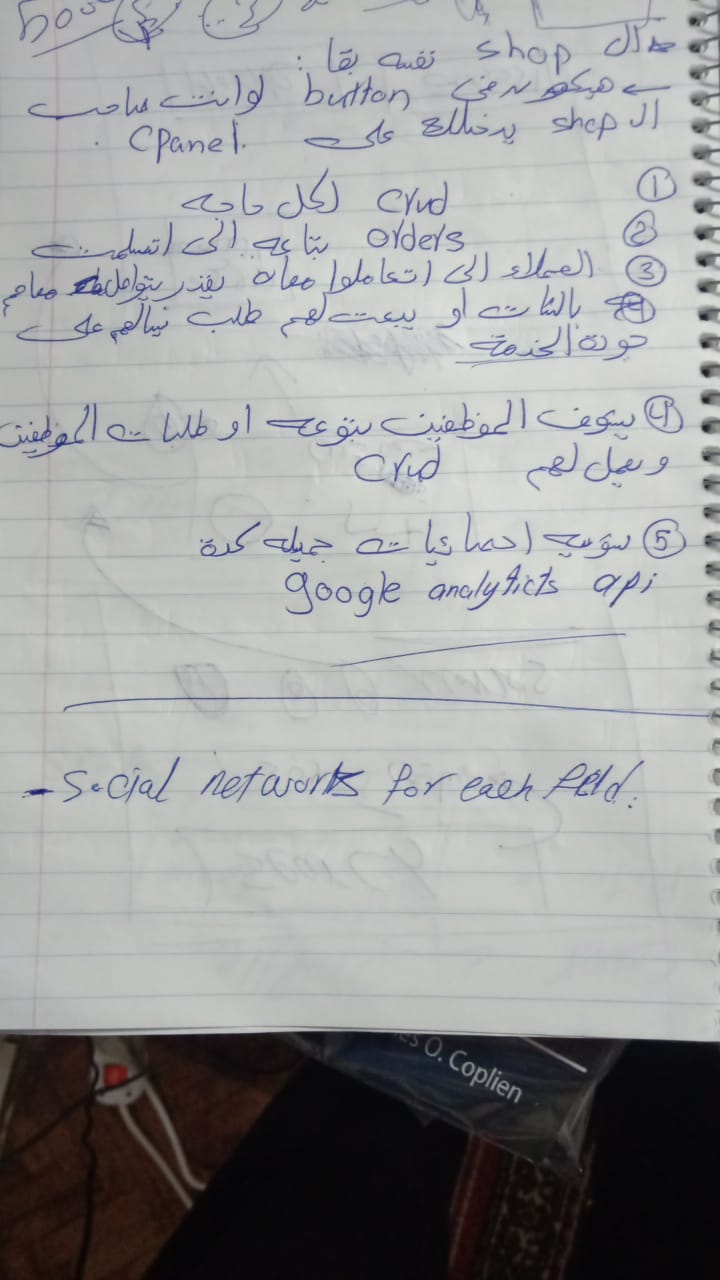 ال shop نفسه بقا :
هيكون في button لو انت صاحب
ال shop يدخلك على Cpanel.
① crud لكل حاجه
② orders بتاعه الى اتسلمت
③ العملاء الى اتعاملوا معاه يقدر يتواصل معاهم
بالشات او يبعت لهم طلب نيسألهم على
جودة الخدمة
④ يشوف الموظفين بتوعه او طلبات الموظفين
و يعمل لهم crud
⑤ احصائيات جميله كدة
google analyticts api
- Social networks for each field.
es O. Coplien